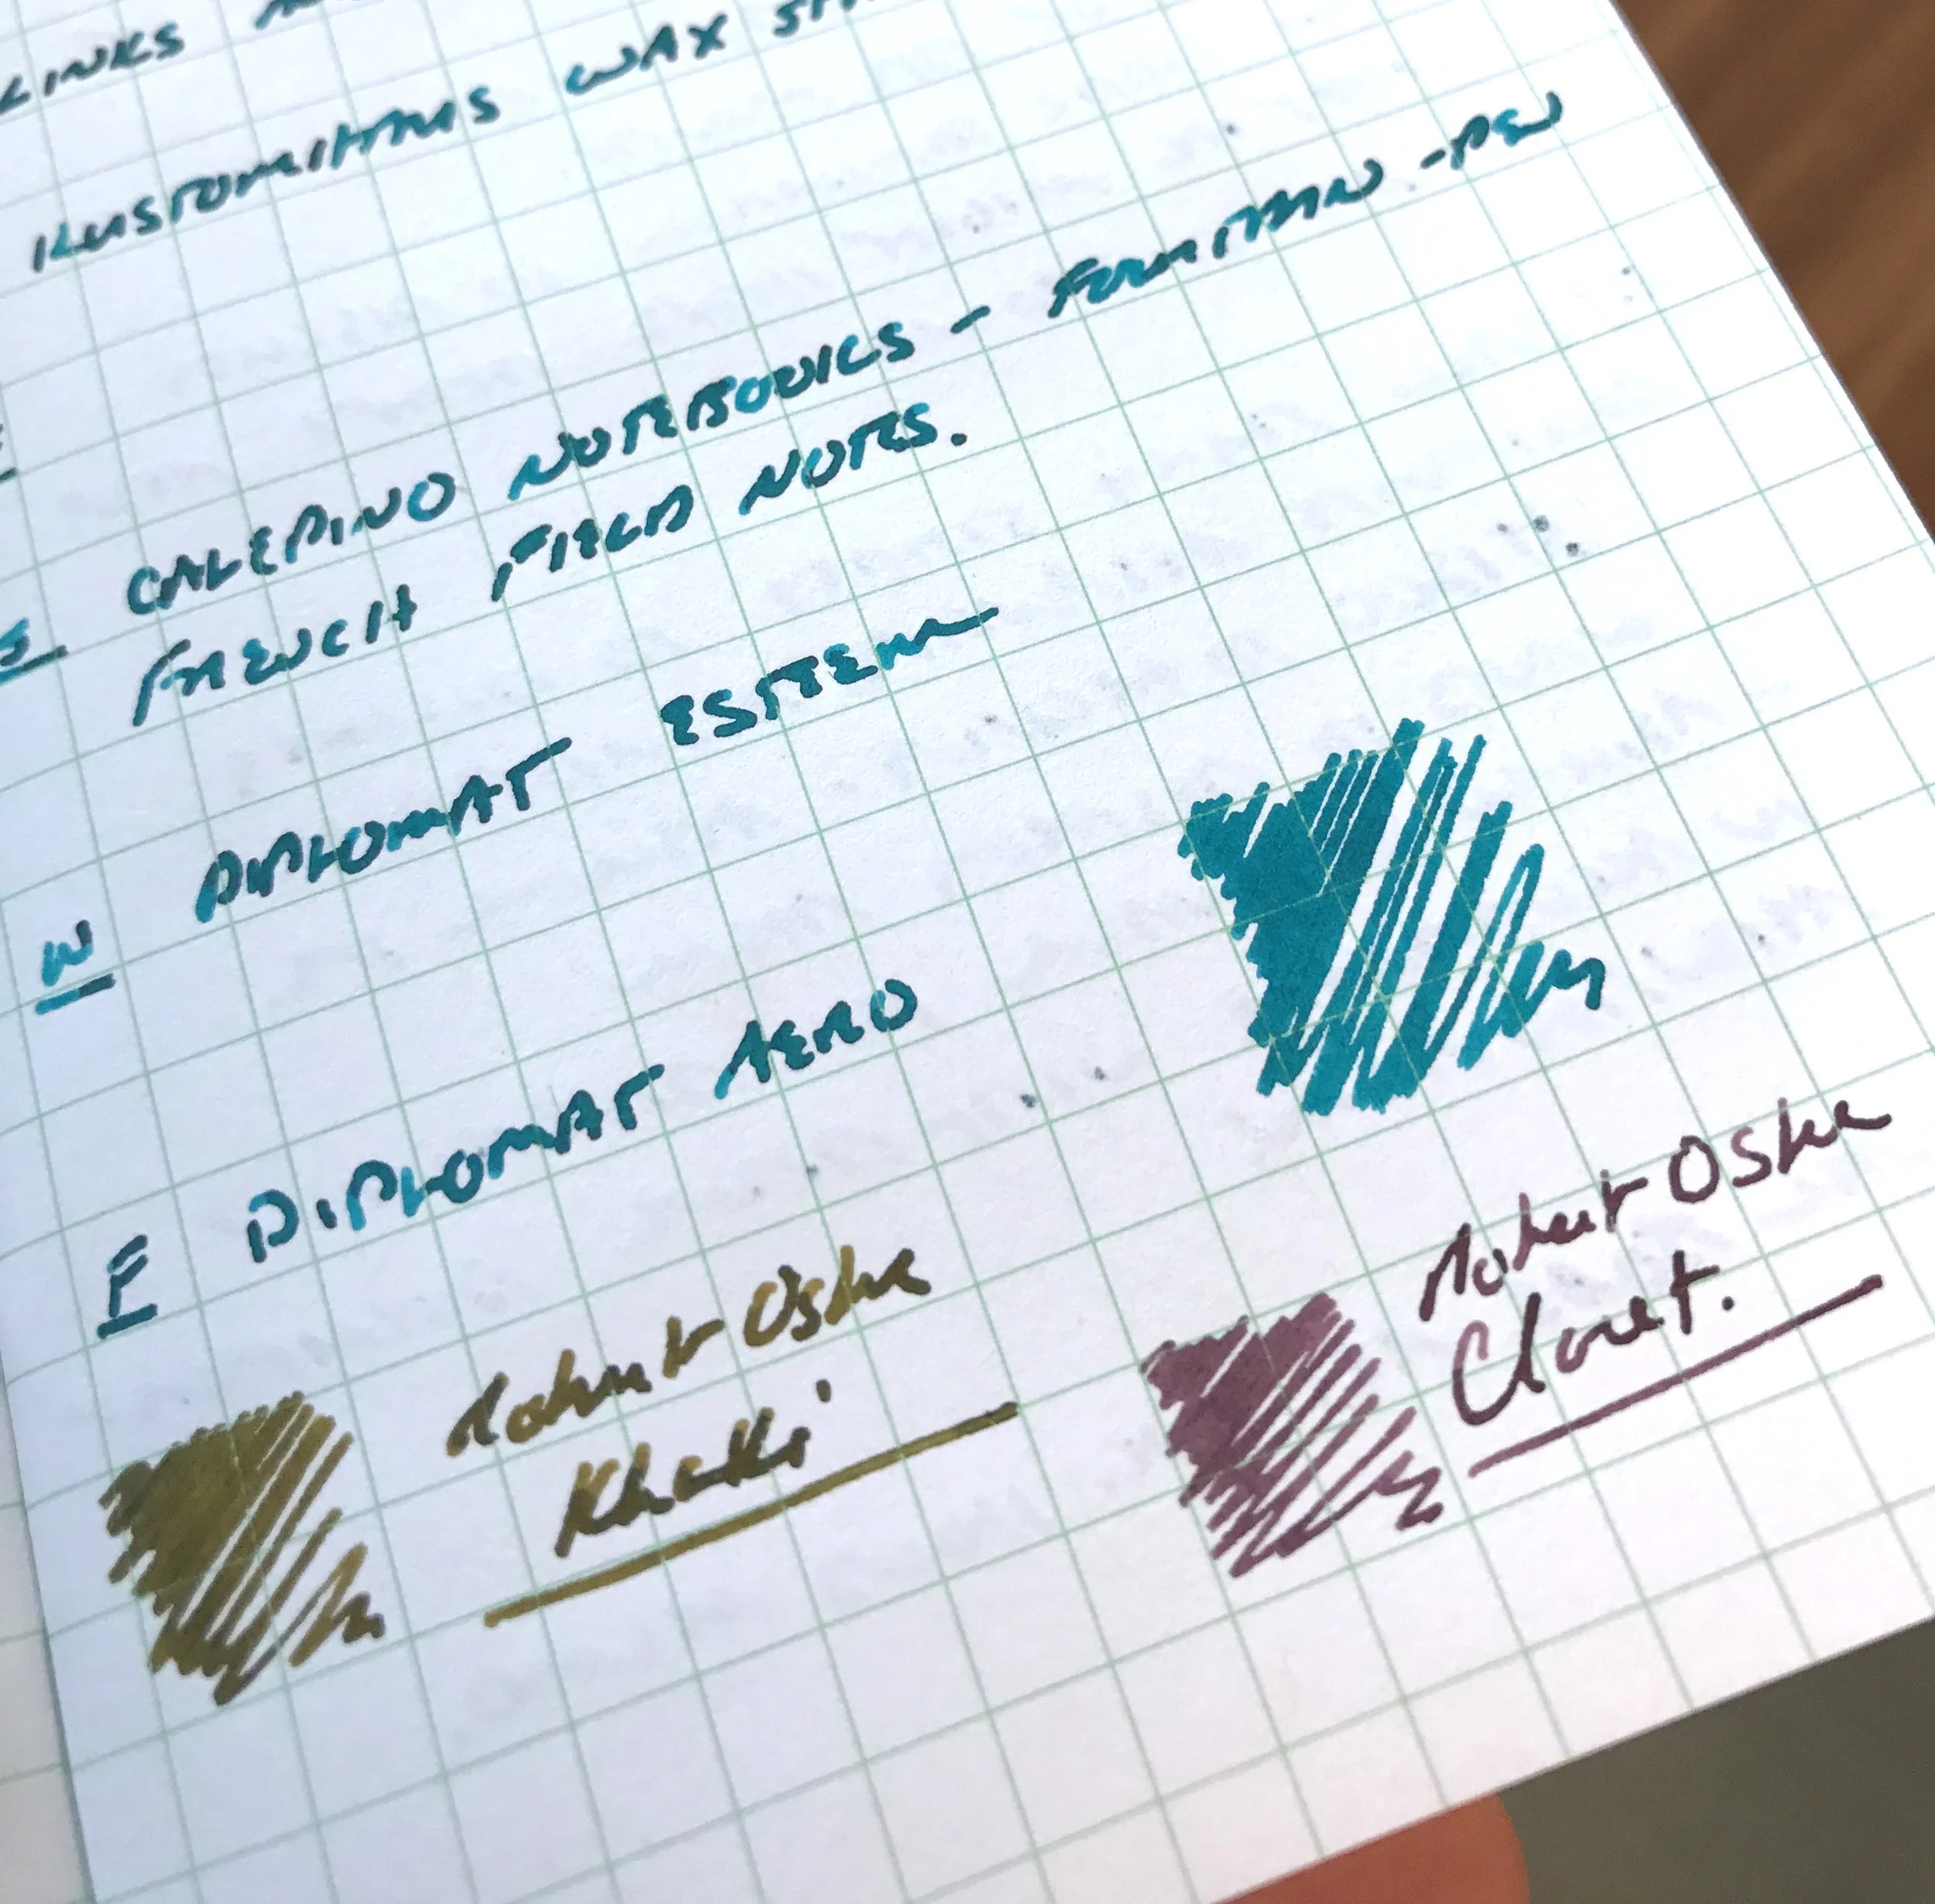 LINKS
KUSTOMITHIS WAX
CALEPINO NOTEBOOKS - FOUNTAIN - PEN
S FRENCH FIELD NOTES.
W DIPLOMAT ESTEEM
F DIPLOMAT AERO
Robert Oster
Khaki
Robert Oster
Claret.